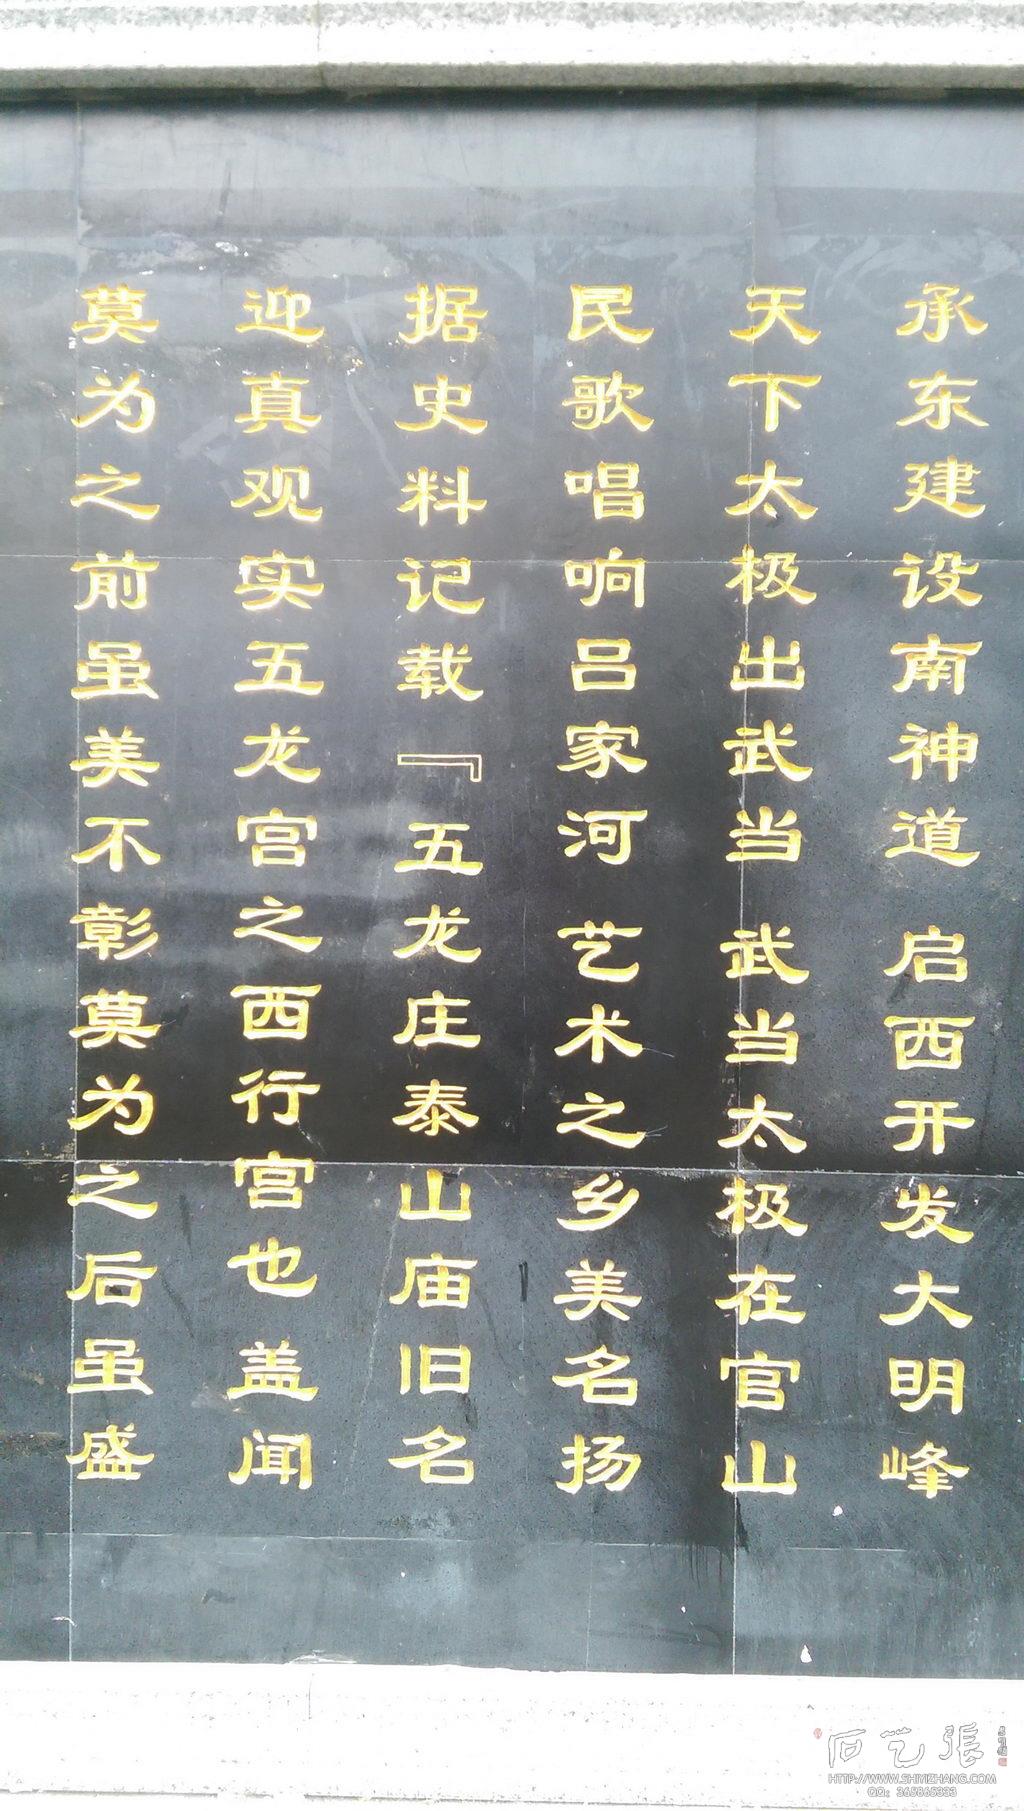 承东建设南神道 启西开发大明峰
天下太极出武当 武当太极在官山
民歌唱响吕家河 艺术之乡美名扬
据史料记载『五龙庄泰山庙旧名
迎真观实五龙宫之西行宫也 盖闻
莫为之前虽美不彰莫为之后虽盛
石艺張
HTTP://WWW.SHIYIZHANG.COM
QQ: 365865333